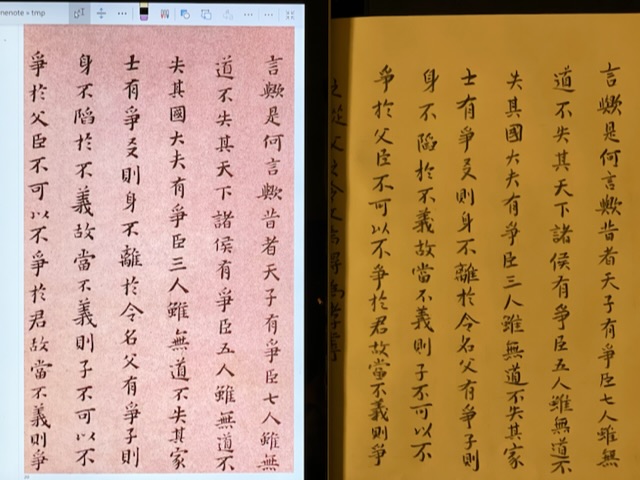 nenote » tmp
言歟是何言歟昔者天子有爭臣七人雖無
道不失其天下諸侯有爭臣五人雖無道不
失其國大夫有爭臣三人雖無道不失其家
士有爭友則身不離於令名父有爭子則
身不陷於不義故當不義則子不可以不
爭於父臣不可以不爭於君故當不義則爭
言歟是何言歟昔者天子有爭臣七人雖無
道不失其天下諸侯有爭臣五人雖無道不
失其國大夫有爭臣三人雖無道不失其家
士有爭友則身不離於令名父有爭子則
身不陷於不義故當不義則子不可以不
爭於父臣不可以不爭於君故當不義則爭
之從父之令又焉得為孝乎